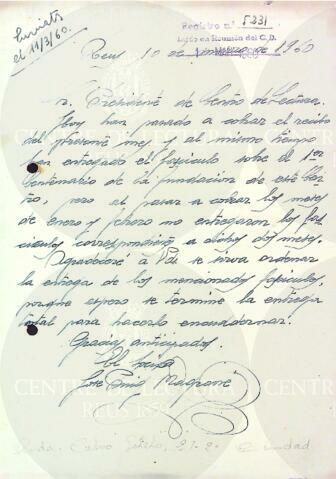 Enviats
el 11/3/60.
Registro n.º 5231
Leído en Reunión del C.D.
Reus 10 de marzo de 1960
Sr. Presidente de Centro de Lectura.
Hoy han pasado a cobrar el recibo
del presente mes y al mismo tiempo
han entregado el fascículo sobre el 1er
Centenario de la fundacion de este Cen-
tro, pero al pasar a cobrar los meses
de enero y febrero no entregaron los fas-
ciculos correspondientes a dichos dos meses.
Agradeceré a Vds. se sirva ordenar
la entrega de los mencionados fasciculos,
porque espero se termine la entrega
total para hacerlo encuadernar.
Gracias anticipadas.
José
CENTRE DE LECTURA
REUS 1859
Avda. Calvo Sotelo, 21-2º Ciudad